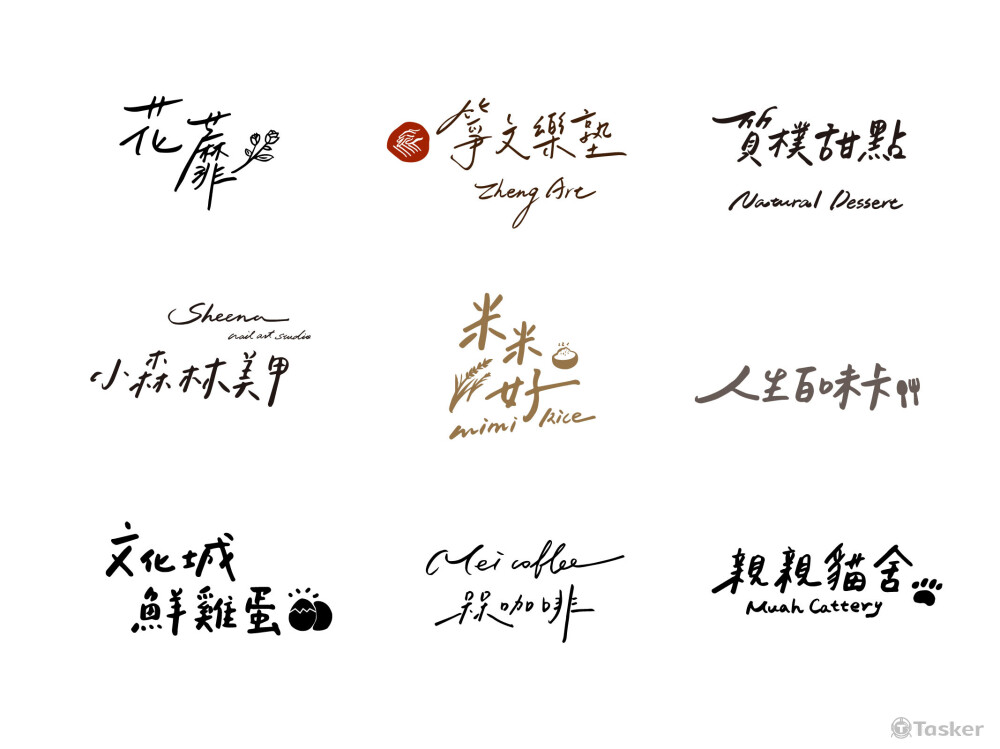 花
蘼
箏文樂塾
Zheng Art
質樸甜點
Natural Dessert
Sheena
nail art studio
小森林美甲
米
米
好
mimi Rice
人生百味卡
文化城
鮮雞蛋
Mei coffee
槑咖啡
親親貓舍
Muah Cattery
Tasker